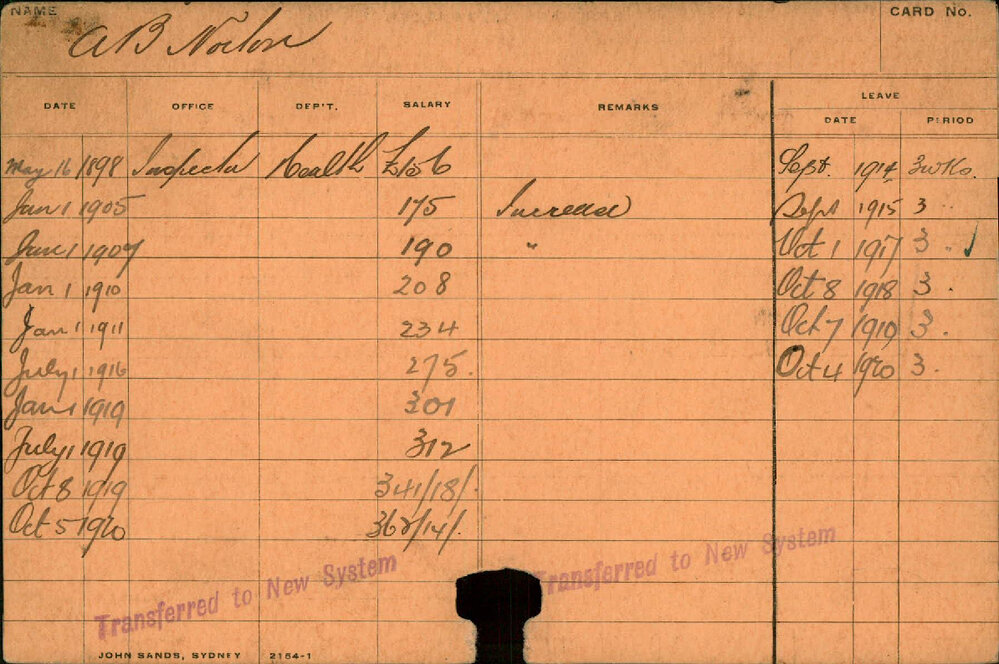 NAME
A B Norton
CARD No.
DATE OFFICE DEP'T. SALARY REMARKS LEAVE
DATE PERIOD
May 16 1898 Inspector Health £156 Sept. 1914 3 wks.
Jan 1 1905 175 Increased Sept 1915 3 "
Jan 1 1907 190 " Oct 1 1917 3 " ✓
Jan 1 1910 208 Oct 8 1918 3 "
Jan 1 1911 234 Oct 7 1919 3 "
July 1 1916 275. Oct 4 1920 3 "
Jan 1 1919 301
July 1 1919 312
Oct 8 1919 341/18/.
Oct 5 1920 362/14/.
Transferred to New System
Transferred to New System
JOHN SANDS, SYDNEY 2154-1